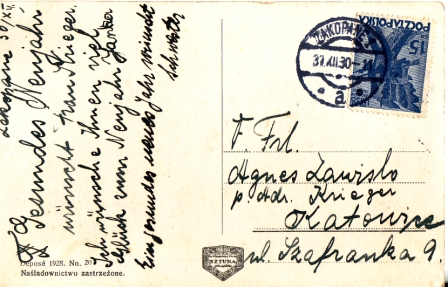 Zakopane 30/XII
Gesundes Neujahr
wünscht Fran Krieger.
Ich wünsche Ihnen viel
Glück zum Neujahr Janka
Ein gesundes neues Jahr wünscht
ZAKOPANE
31.XII.30
a
POCZTA POLSKA
15
Frl.
Agnes Zawislo
p. Adr. Krieger
Katowice
ul. Szafranka 9.
SZTUKA
Deposé 1928. No. 20
Naśladownictwo zastrzeżone.